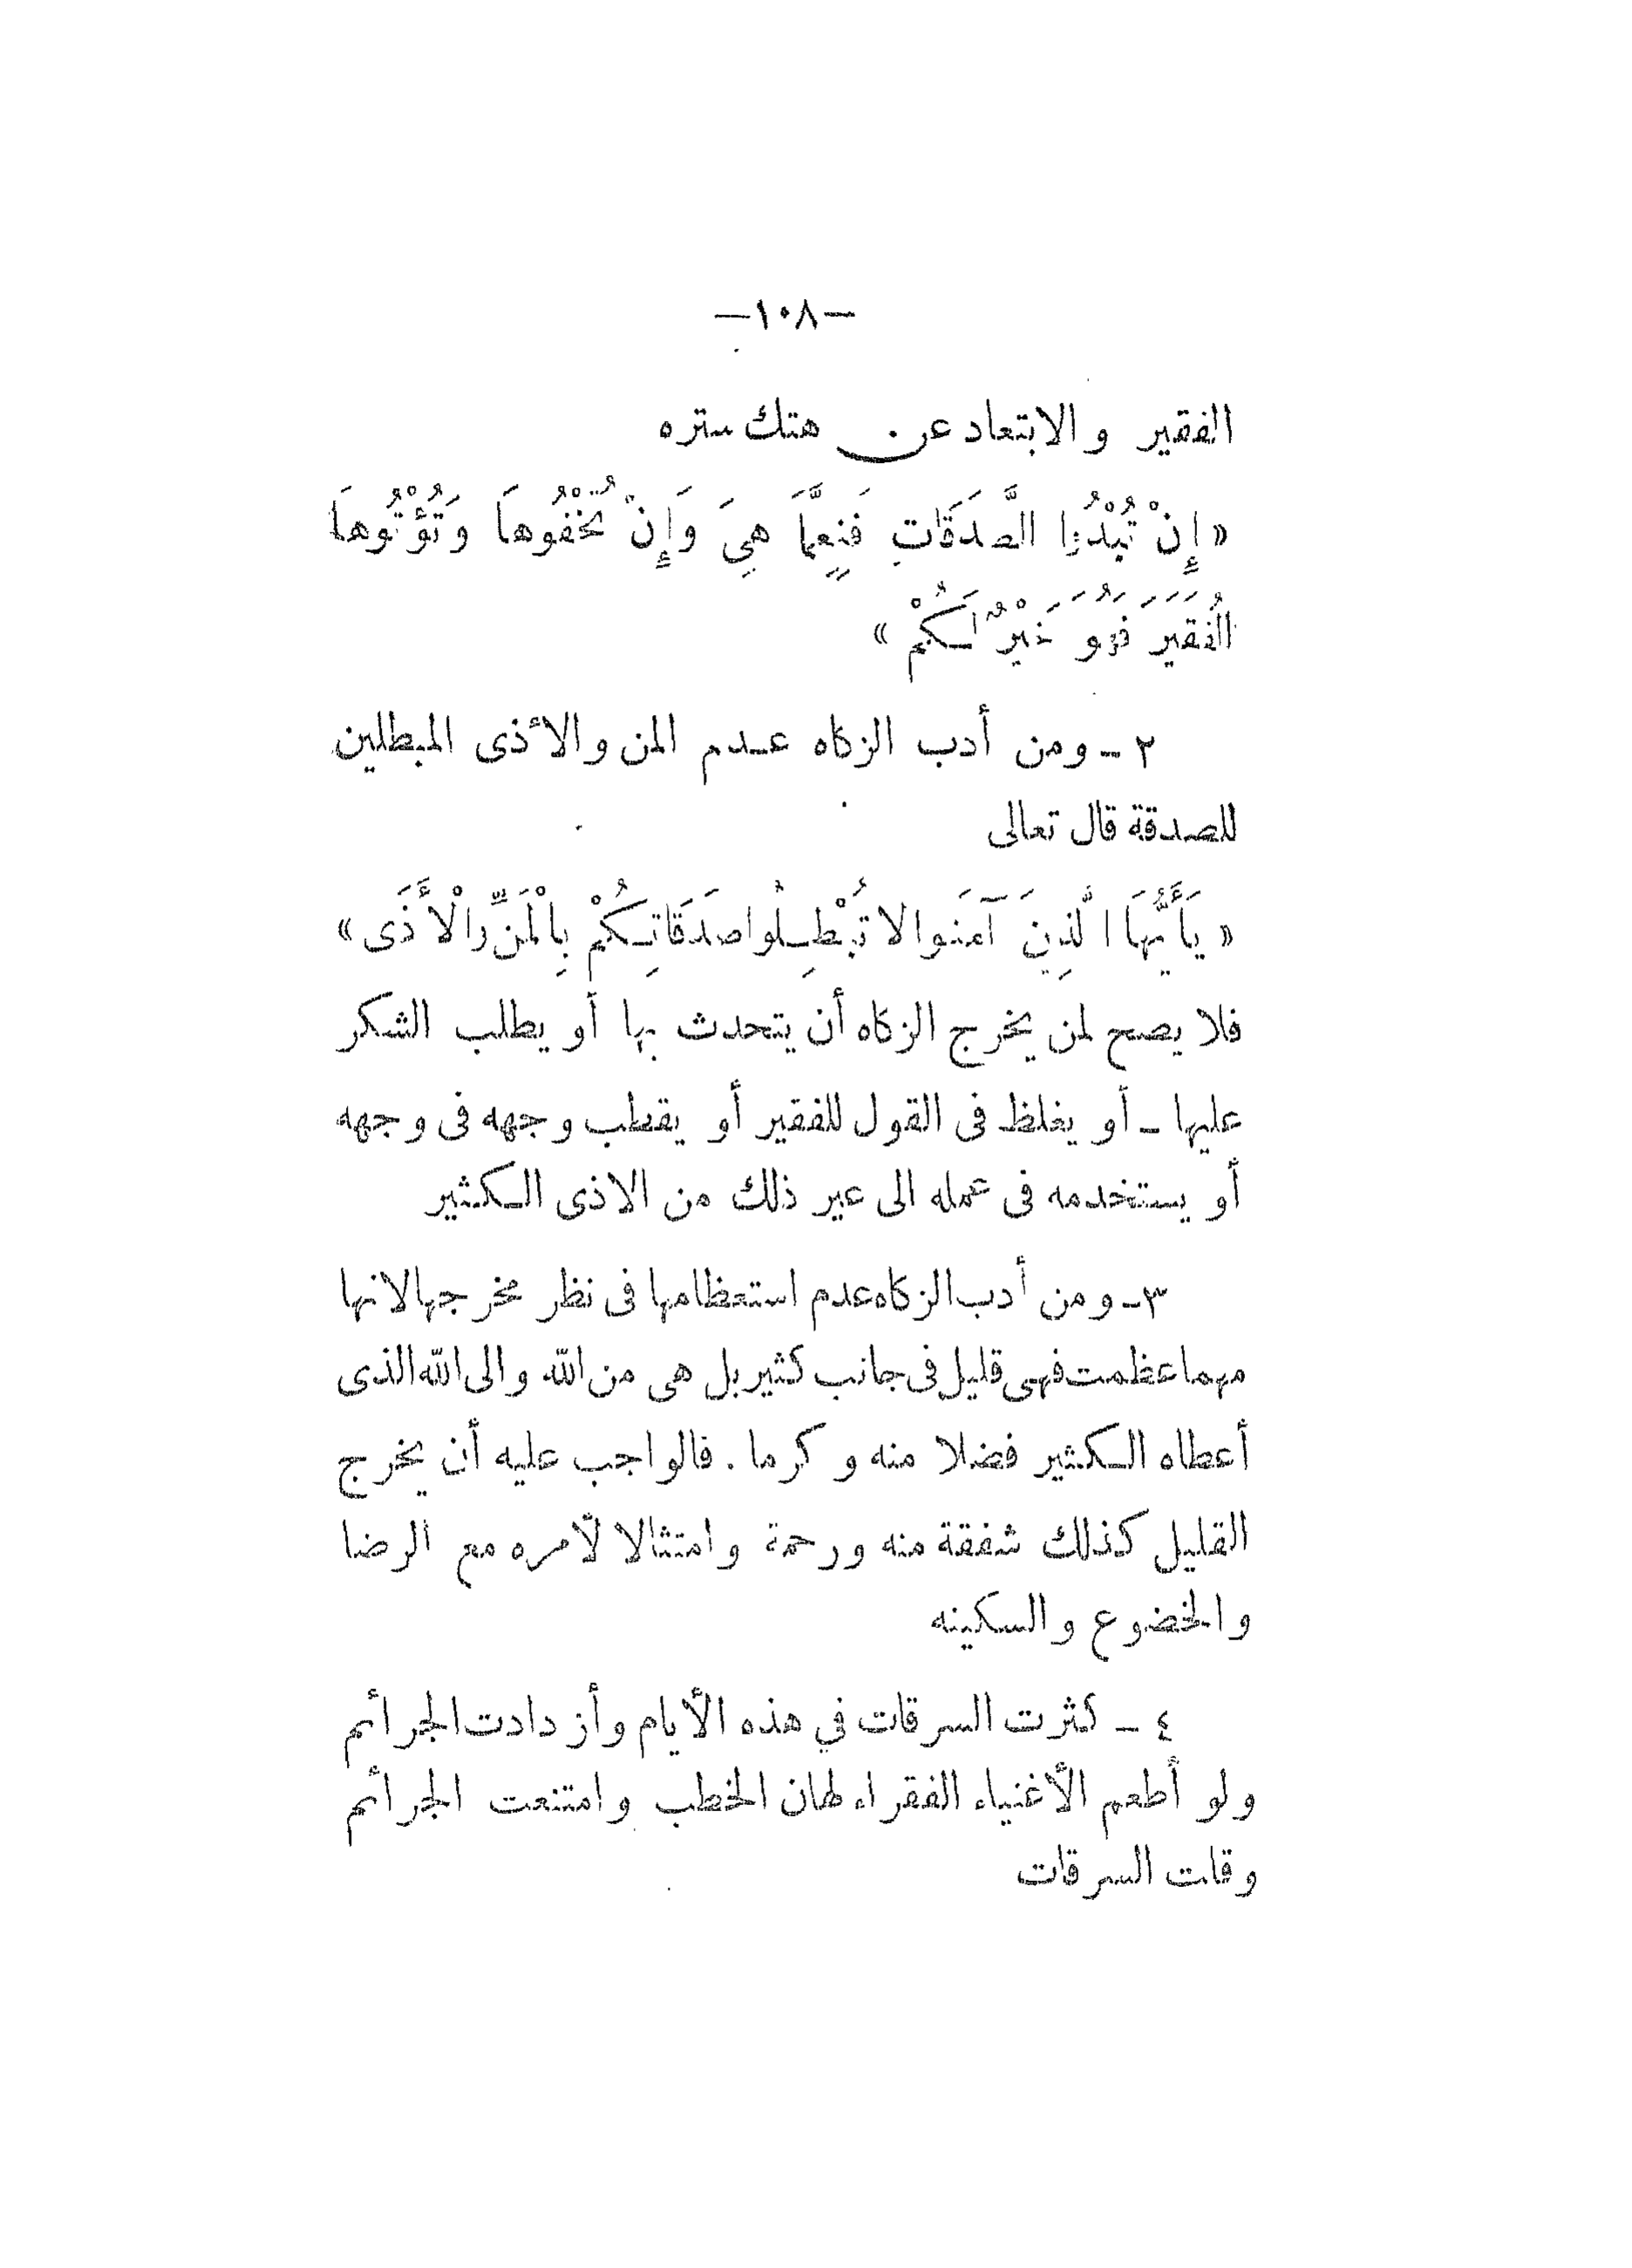 —١٠٨—
الفقير والابتعاد عن هتك ستره
« إِنْ تُبْدُوا الصَّدَقَاتِ فَنِعِمَّا هِيَ وَإِنْ تُخْفُوهَا وَتُؤْتُوهَا
الْفُقَيَر فَهُوَ خَيْرٌ لَكُمْ »
٢ ـ ومن أدب الزكاه عدم المن والأذى المبطلين
للصدقة قال تعالى
« يَأَيُّهَا الَّذِينَ آمَنوا لا تُبْطِلُوا صَدَقَاتِكُمْ بِالْمَنِّ والْأَذَى »
فلا يصح لمن يخرج الزكاه أن يتحدث بها أو يطلب الشكر
عليها ـ أو يغلظ فى القول للفقير أو يقطب وجهه فى وجهه
أو يستخدمه فى عمله الى عير ذلك من الاذى الكثير
٣ـ ومن أدب الزكاه عدم استعظامها فى نظر مخرجها لانها
مهما عظمت فهى قليل فى جانب كثير بل هى من الله والى الله الذى
أعطاه الكثير فضلا منه وكرما . فالواجب عليه أن يخرج
القليل كذلك شفقة منه ورحمة وامتثالا لأمره مع الرضا
والخضوع والسكينه
٤ ـ كثرت السرقات في هذه الأيام وأزدادت الجرأئم
ولو أطعم الأغنياء الفقراء لهان الخطب وامتنعت الجرأئم
وقلت السرقات